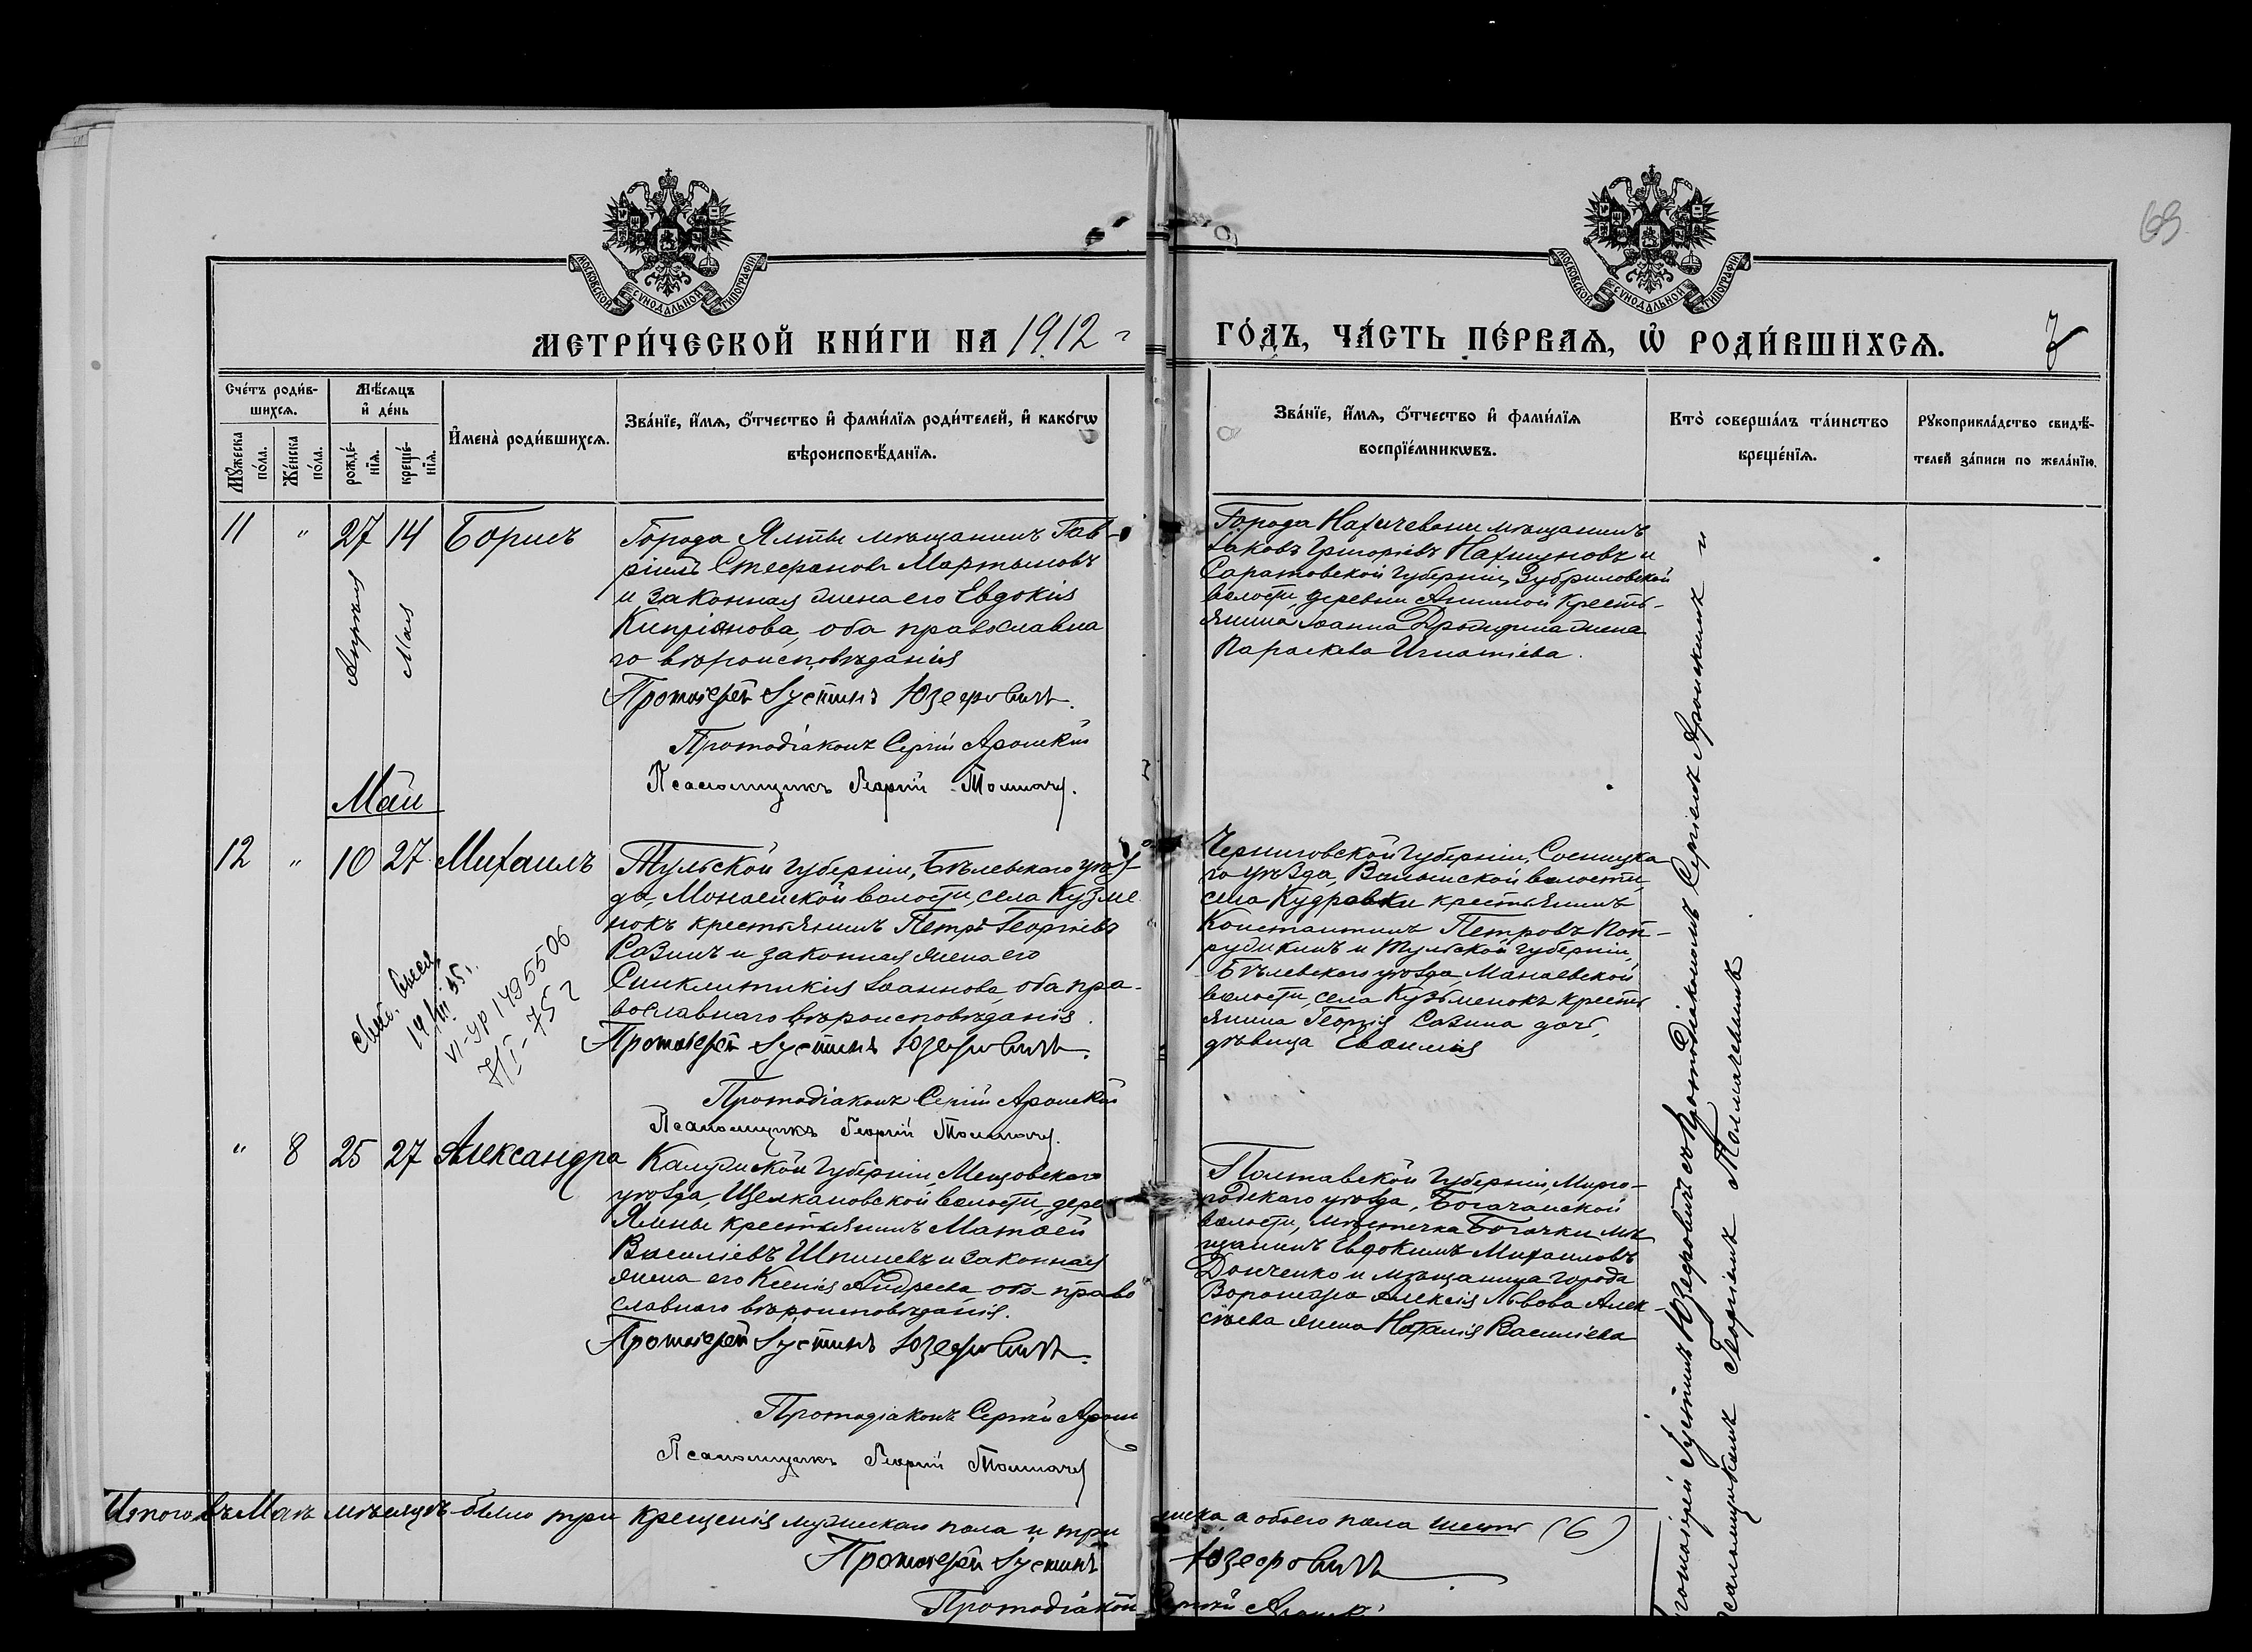 63
МОСКОВСКОЙ СУНОДАЛЬНОЙ ТИПОГРАФІИ
МОСКОВСКОЙ СУНОДАЛЬНОЙ ТИПОГРАФІИ
МЕТРИ́ЧЕСКОЙ КНИ́ГИ НА 1912
ГО́ДЪ, ЧА́СТЬ ПЕ́РВАѦ, Ѡ҆ РОДИ́ВШИХСѦ.
7
Сче́тъ роди́в-
шихсѧ.
Мѹ́жеска
по́ла.
Же́нска
по́ла.
Мѣ́сѧцъ
и҆ де́нь
рожде́-
нїѧ.
креще́-
нїѧ.
И҆мена̀ роди́вшихсѧ.
Зва́нїе, и҆́мѧ, ѻ҆́тчество и҆ фами́лїѧ роди́телей, и҆ како́гѡ
вѣроисповѣ́данїѧ.
Зва́нїе, и҆́мѧ, ѻ҆́тчество и҆ фами́лїѧ
воспрїе́мникѡвъ.
Кто̀ соверша́лъ та́инство
креще́нїѧ.
Рѹкоприкла́дство свидѣ́-
телей за́писи по жела́нїю.
11 " 27 14 Борисъ
Апрѣля
Мая
Города Ялты мѣщанинъ Гав-
ріилъ Стефановъ Мартыновъ
и законная жена его Евдокія
Кипріанова, оба православна
го вѣроисповѣданія
Протоіерей Іустинъ Юзефовичъ.
Протодіаконъ Сергій Аронскій
Псаломщикъ Георгій Толмачев.
Города Нахичевани мѣщанинъ
Іаковъ Григоріевъ Нахшуновъ и
Саратовской губерніи, Зубриловской
волости, деревни крестья-
янина Іоанна жена
Параскева Игнатіева.
Май
12 " 10 27 Михаилъ
Тульской губерніи, Бѣлевскаго уѣз-
да, Монаенской волости, села Кузме
нокъ крестьянинъ Петръ Георгіевъ
Савинъ и законная жена его
Синклитикія Іоаннова, оба пра-
вославнаго вѣроисповѣданія.
Протоіерей Іустинъ Юзефовичъ.
Протодіаконъ Сергій Аронскій
Псаломщикъ Георгій Толмачев.
19/III 55 г.
VI-УР 1495506
7/I-75 г
Черниговской губерніи, Сосницка
го уѣзда, Волынской волости,
села Кудравки крестьянинъ
Константинъ Петровъ Поп-
рудикинъ и Тульской губерніи,
Бѣлевскаго уѣзда, Манаевской
волости, села Кузьменокъ кресть
янина Георгія Савина дочь,
дѣвица
" 8 25 27 Александра
Калужской губерніи, Мещовскаго
уѣзда, Щелкановской волости, дере
Ямны крестьянинъ Матѳей
Василіевъ Шпилевъ и законная
жена его Ксенія Андреева оба право
славнаго вѣроисповѣданія.
Протоіерей Іустинъ Юзефовичъ.
Протодіаконъ Сергій Арон
Псаломщикъ Георгій Толмачев
Полтавской губерніи, Мирго-
родскаго уѣзда, Богачанской
волости, мѣстечка Богачки мѣ
щанинъ Евдокимъ Михаиловъ
Донченко и мѣщанина города
Воронежа Алексія Львова Алек-
сѣева жена Наталія Василіева
Протоіерей Іустинъ Юзефовичъ съ Протодіакономъ Сергіемъ Аронскимъ и
Псаломщикомъ Георгіемъ Толмачевымъ.
Итого въ Маѣ мѣсяцѣ было три крещенія мужескаго пола и три
нска, а обоего пола шесть (6)
Протоіерей Іустинъ Юзефовичъ
Протодіакон Сергій Аронскі